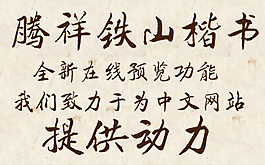 腾祥铁山楷书
全新在线预览功能
我们致力于为中文网站
提供动力